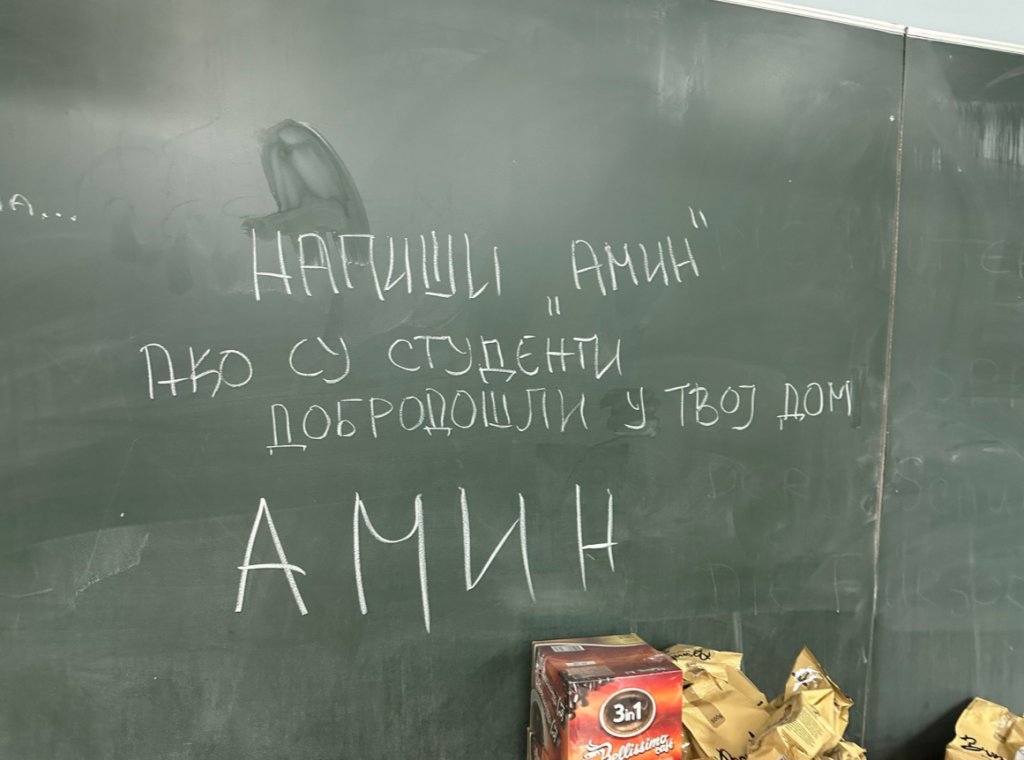 НАПИШИ „АМИН"
АКО СУ СТУДЕНТИ
ДОБРОДОШЛИ У ТВОЈ ДОМ
АМИН
3in1
Bellissimo
café